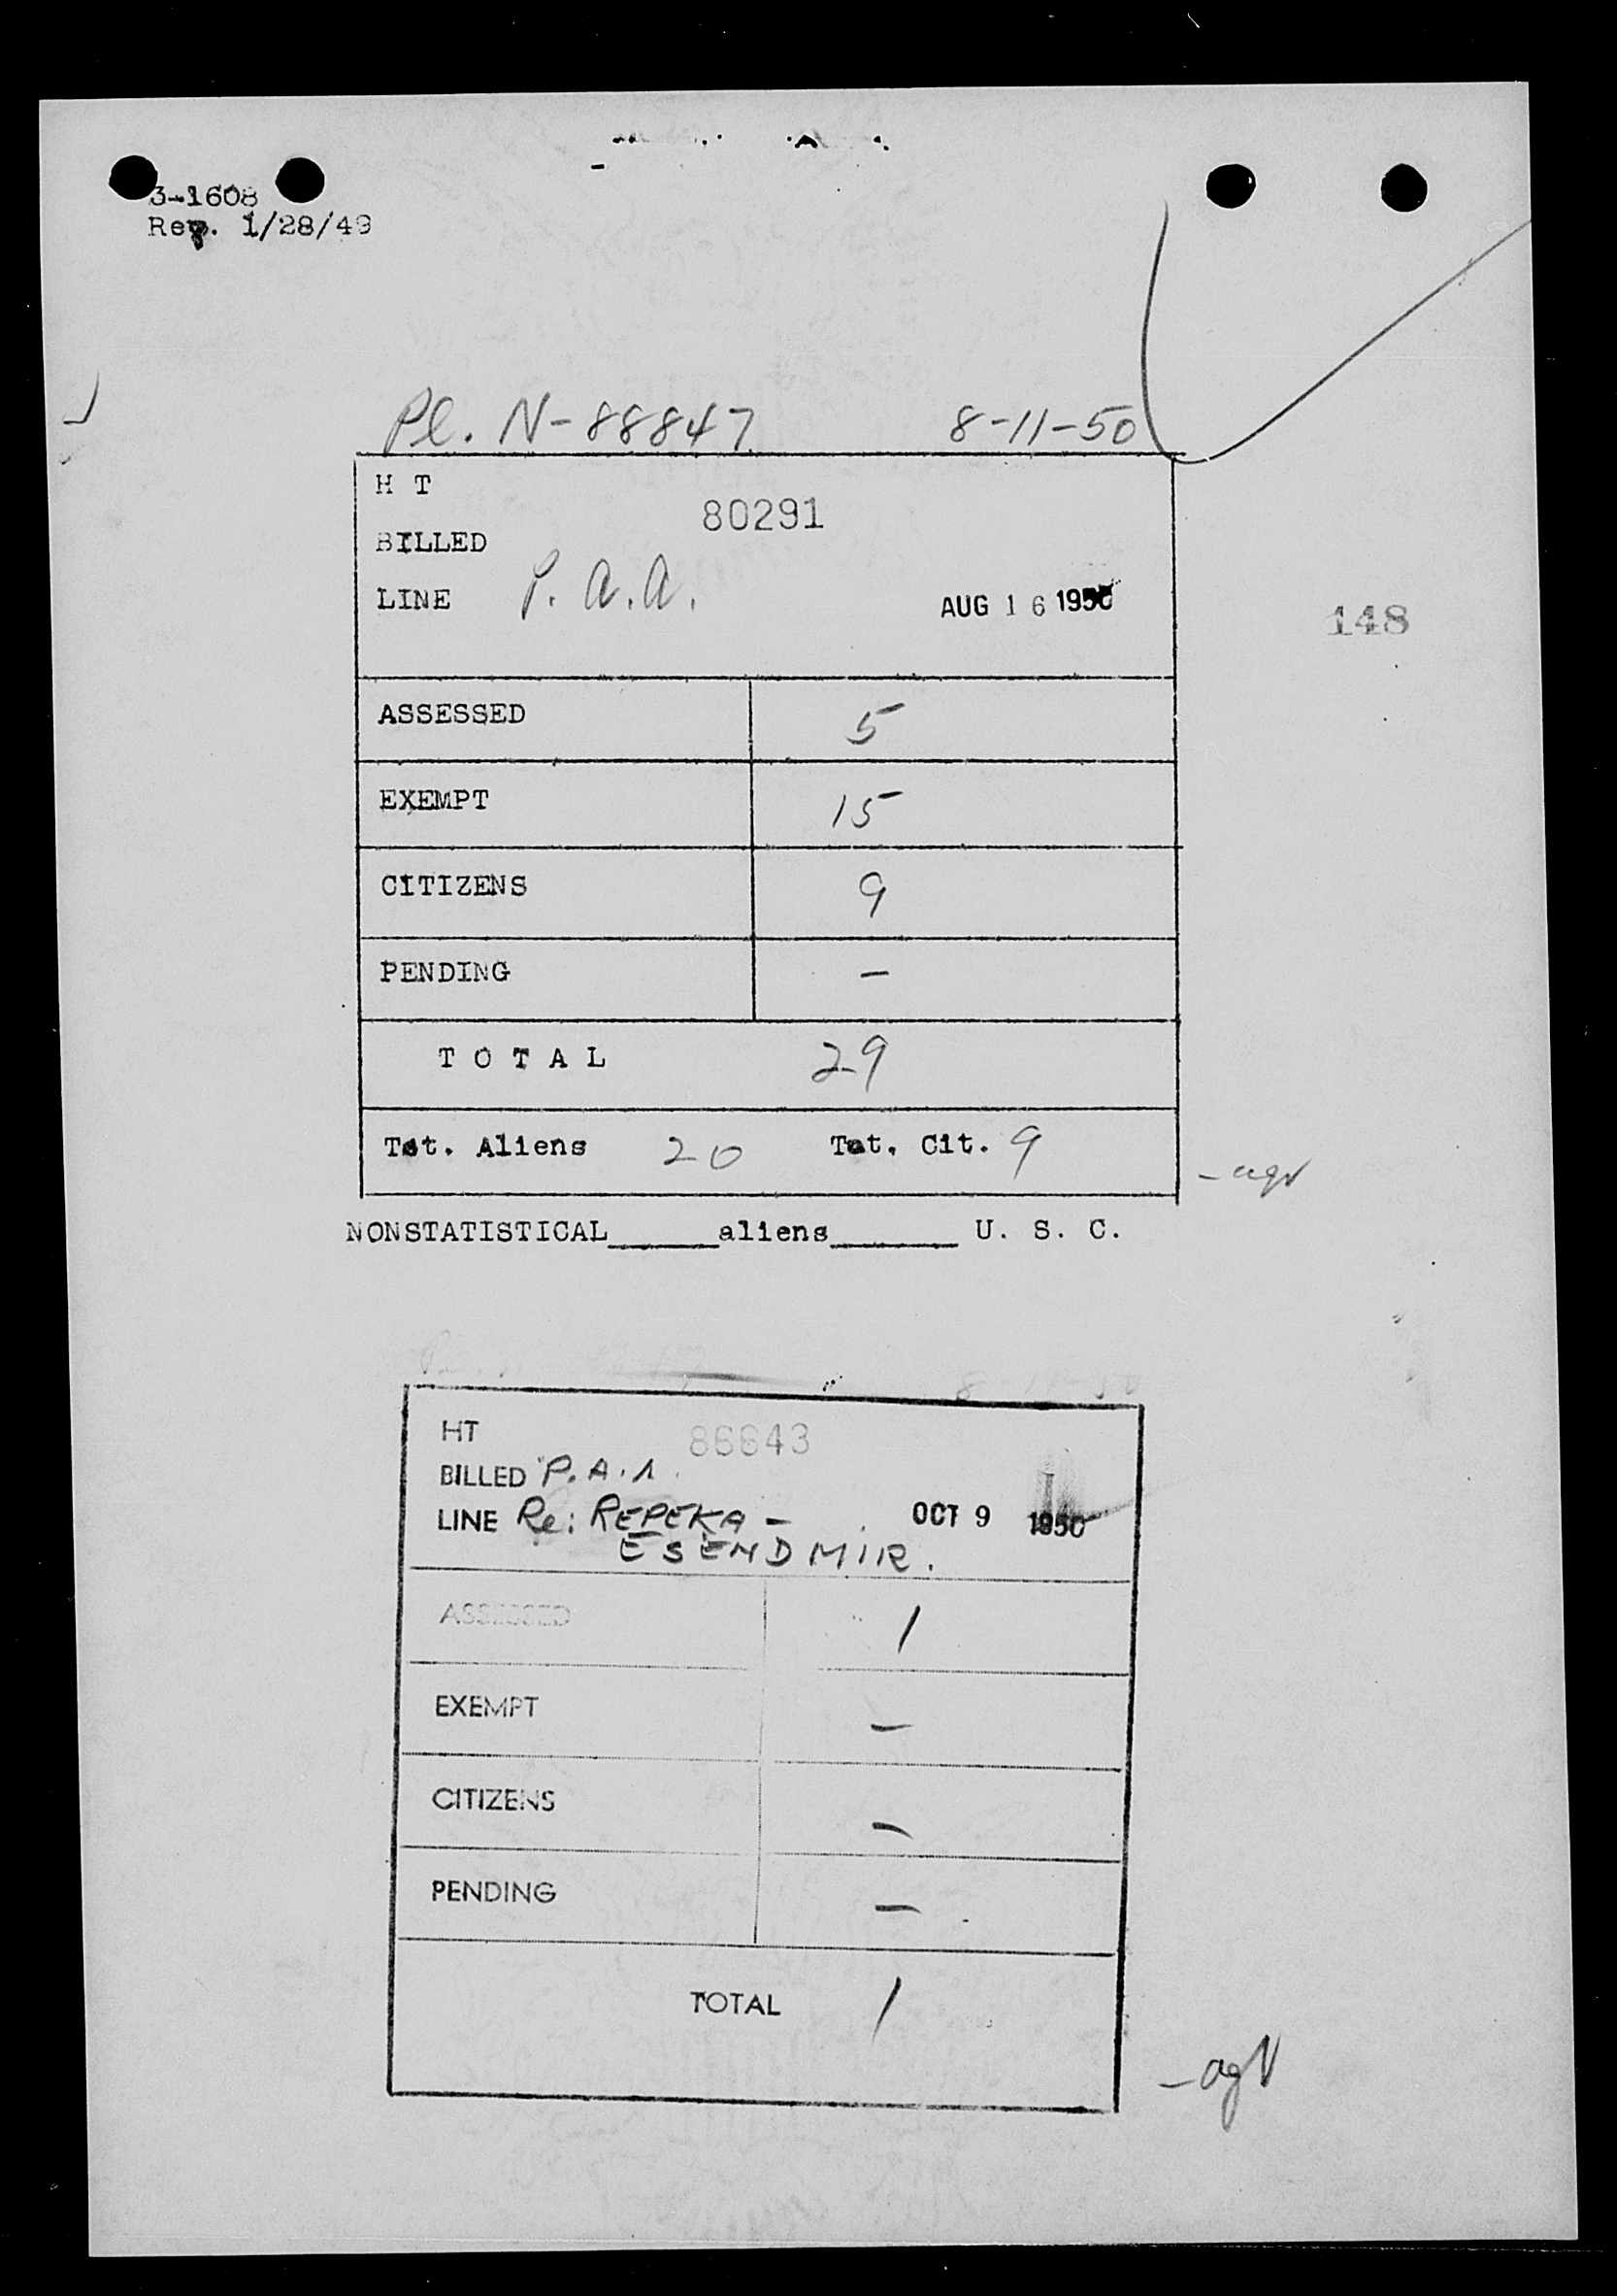 3-1608
Rev. 1/28/49
Pl. N-88847 8-11-50
H T
80291
BILLED
LINE P.A.A. AUG 16 1950
148
ASSESSED 5
EXEMPT 15
CITIZENS 9
PENDING –
T O T A L 29
Tot. Aliens 20 Tot. Cit. 9
- agv
NONSTATISTICAL______aliens_______ U. S. C.
HT 86643
BILLED P.A.A.
LINE Re: REPEKA - OCT 9 1950
ESENDMIR.
ASSESSED 1
EXEMPT –
CITIZENS –
PENDING –
TOTAL 1
- agv